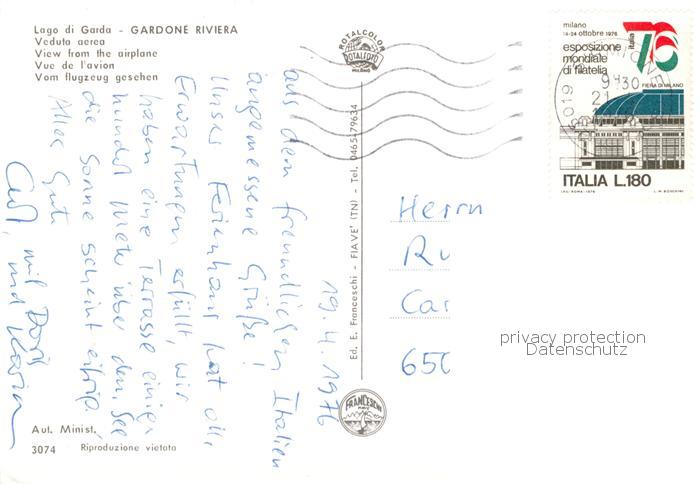 Lago di Garda - GARDONE RIVIERA
Veduta aerea
View from the airplane
Vue de l'avion
Vom flugzeug gesehen
ROTALCOLOR
ROTALFOTO
MILANO
milano
14-24 ottobre 1976
esposizione
mondiale
di filatelia
italia
76
FIERA DI MILANO
ITALIA L.180
I.P.S.-ROMA-1976
L. M. BOSCHINI
6019
9 30
21
19.4.1976
aus dem freundlichen Italien
angemessene Grüße!
Unser Ferienhaus hat alle
Erwartungen erfüllt, wir
haben eine Terrasse einige
hundert Meter über dem See
die Sonne scheint eifrig,
Alles Gute
mit Doris
und
Ed. E. Franceschi - FIAVE' (TN) - Tel. 0465479634
FRANCESCHI
FIAVE
Herrn
Ru
Car
650
privacy protection
Datenschutz
Aut. Minist.
3074 Riproduzione vietata